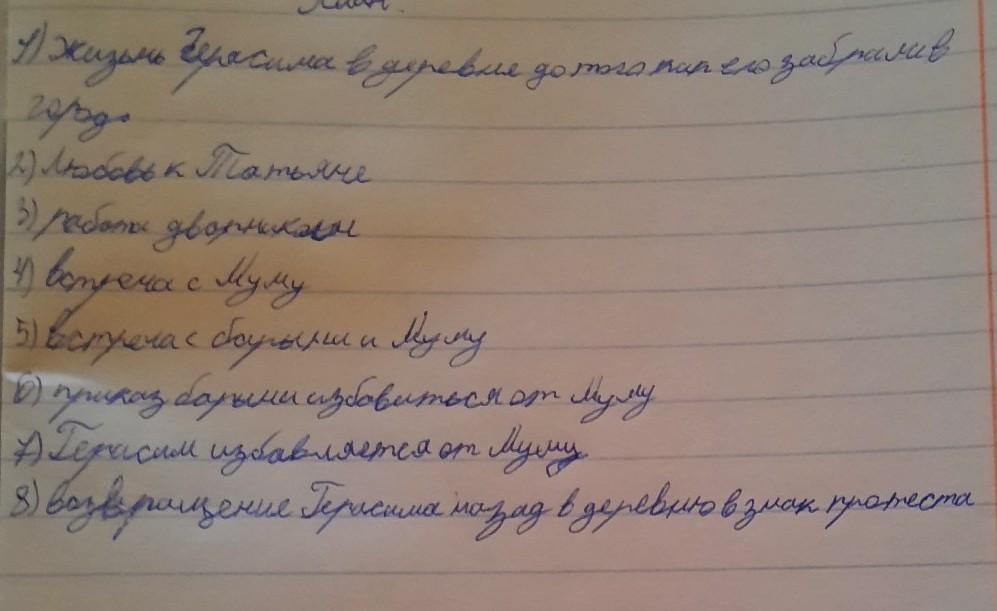 План.
1) Жизнь Герасима в деревне до того как его забрали в
город.
2) Любовь к Татьяне
3) работа дворником
4) встреча с Муму
5) встреча с барыни и Муму
6) приказ барыни избавиться от Муму
7) Герасим избавляется от Муму
8) возвращение Герасима назад в деревню в знак протеста